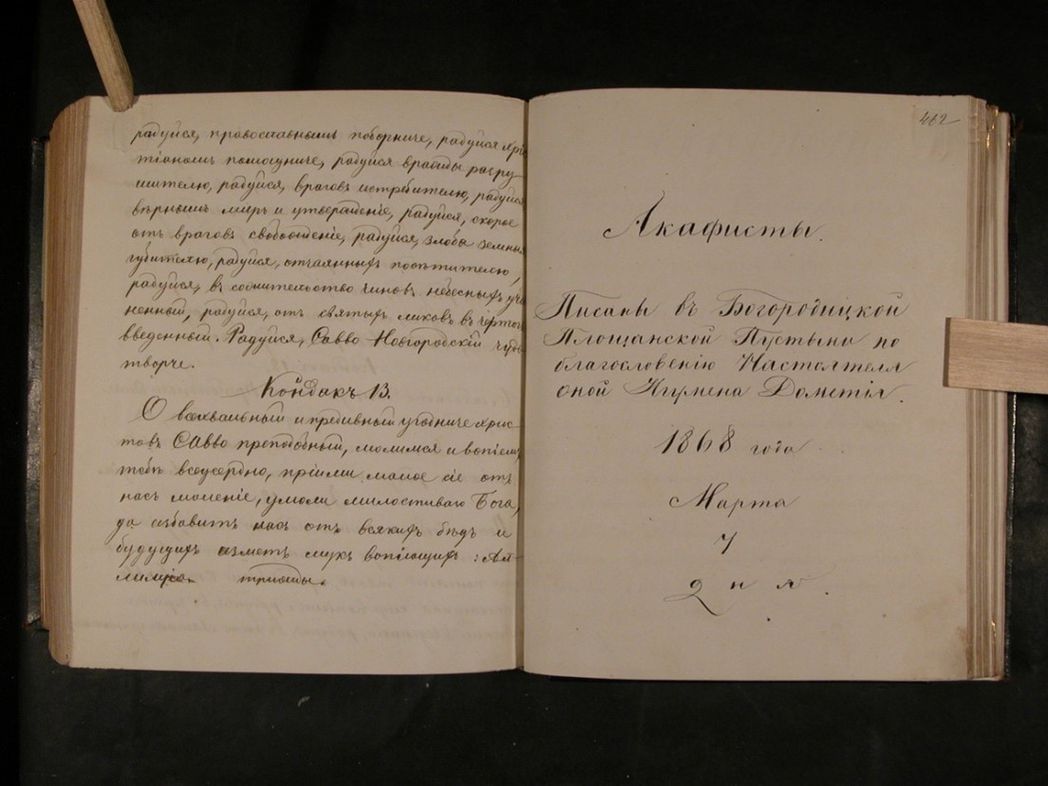 радуйся, православныхъ поборниче, радуйся хрис
тіаномъ помощниче, радуйся вражды разру
шителю, радуйся, враговъ истребителю, радуйся
вѣрнымъ миръ и утвержденіе, радуйся, скорое
отъ враговъ свобожденіе, радуйся, злобы земныя
губителю, радуйся, отчаянныхъ посѣтителю,
радуйся, въ сожительство чиновъ небесныхъ учи
ненный, радуйся, отъ святыхъ ликовъ въ чертогъ
введенный. Радуйся, Савво Новгородскій чудо
творче.
Кондакъ 13.
О всехвальный и предивный угодниче Хрис
товъ Савво преподобный, молимся и вопіемъ
тебѣ всеусердно, пріими малое сіе отъ
насъ моленіе, умоли милостиваго Бога,
да избавитъ насъ отъ всякихъ бѣдъ и
будущихъ изметъ мукъ вопіющихъ: Ал
лилуіа. трижды.
462
Акафисты.
Писаны въ Богородицкой
Площанской Пустыни по
благословенію Настоятеля
оной Игумена Дометія.
1868 года
Марта
7
дня.